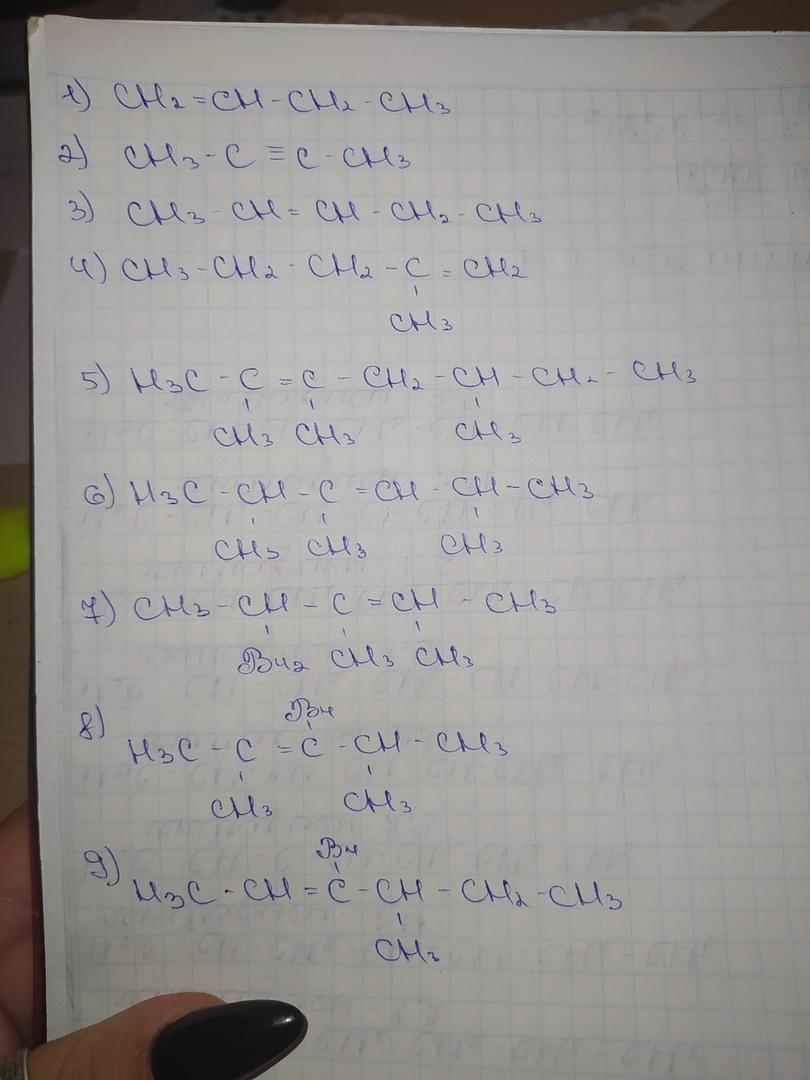 1) CH2=CH-CH2-CH3
2) CH3-C≡C-CH3
3) CH3-CH=CH-CH2-CH3
4) CH3-CH2-CH2-C=CH2
CH3
5) H3C-C=C-CH2-CH-CH2-CH3
CH3 CH3 CH3
6) H3C-CH-C=CH-CH-CH3
CH3 CH3 CH3
7) CH3-CH-C=CH-CH3
Br2 CH3 CH3
Br
8) H3C-C=C-CH-CH3
CH3 CH3
Br
9) H3C-CH=C-CH-CH2-CH3
CH3